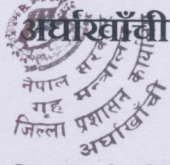 अर्घाखाँची
नेपाल सरकार
गृह मन्त्रालय
जिल्ला प्रशासन कार्या
अर्घाखाँची